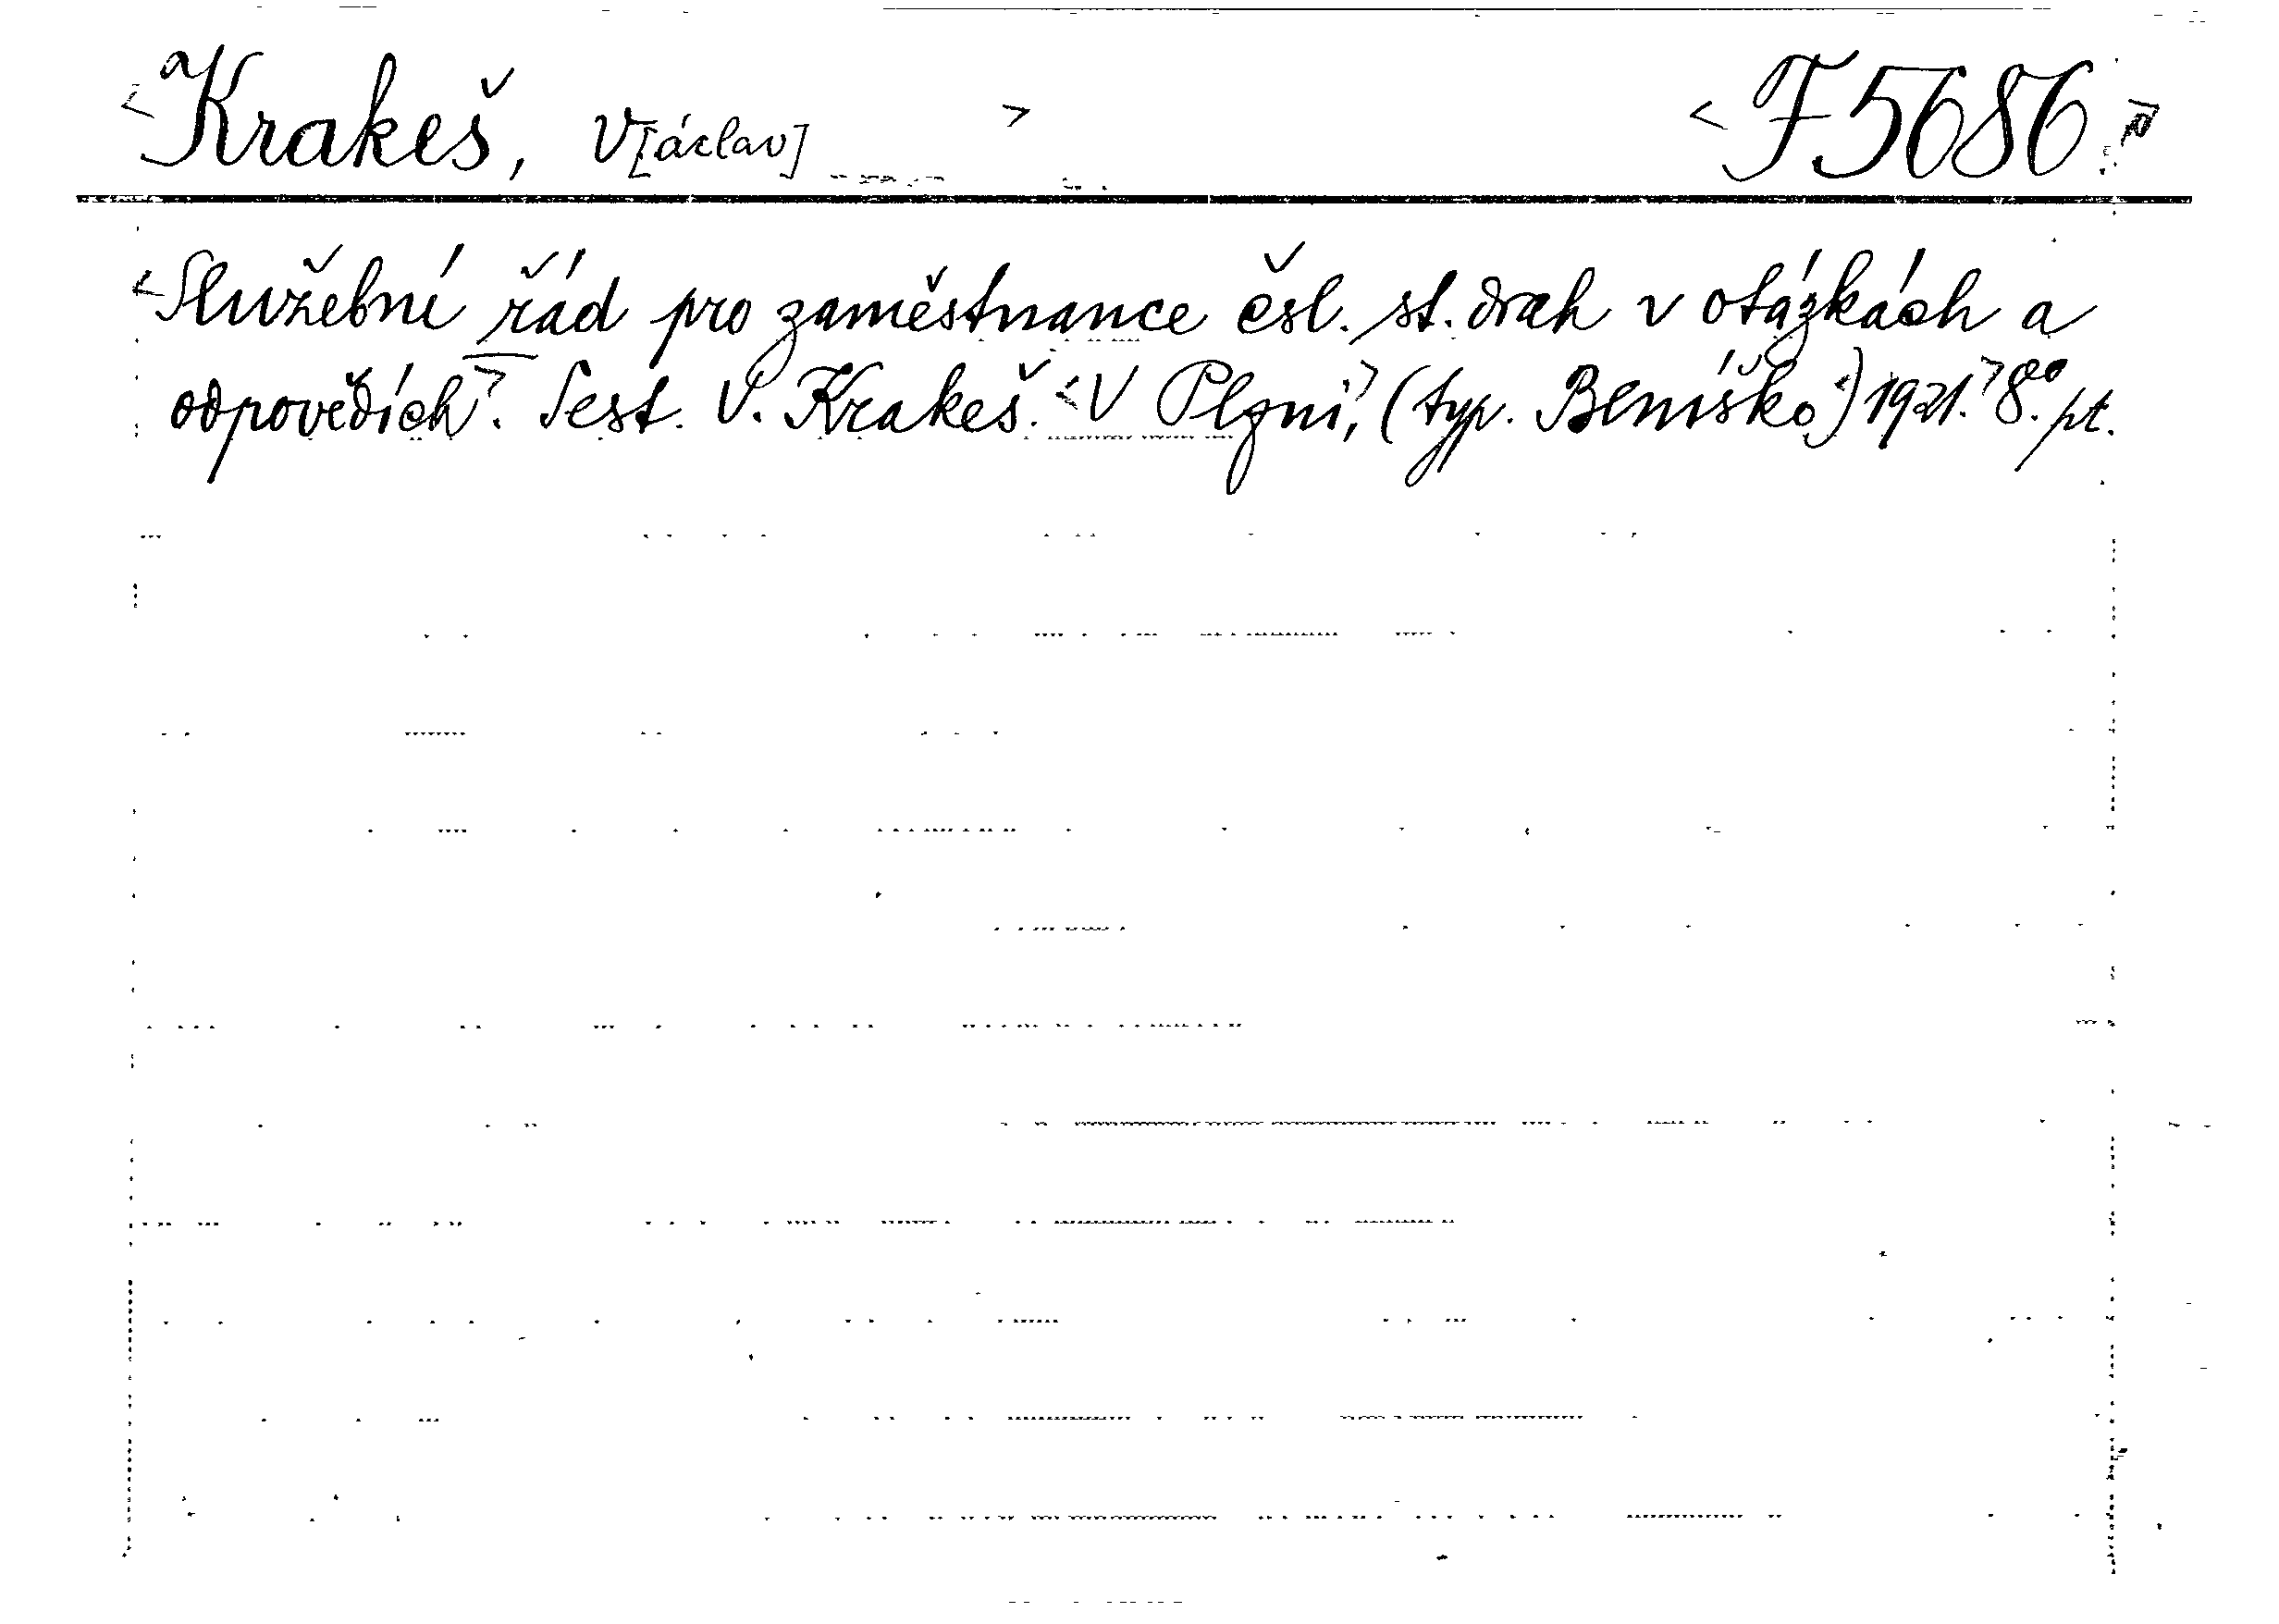 <Krakeš, V[áclav]> <F 5686.>
<Služební řád pro zaměstnance čsl. st. drah v otázkách a
odpovědích>. Sest. V. Krakeš. <V Plzni,> (typ. <Beníško>) 1921.> 8°. pt.